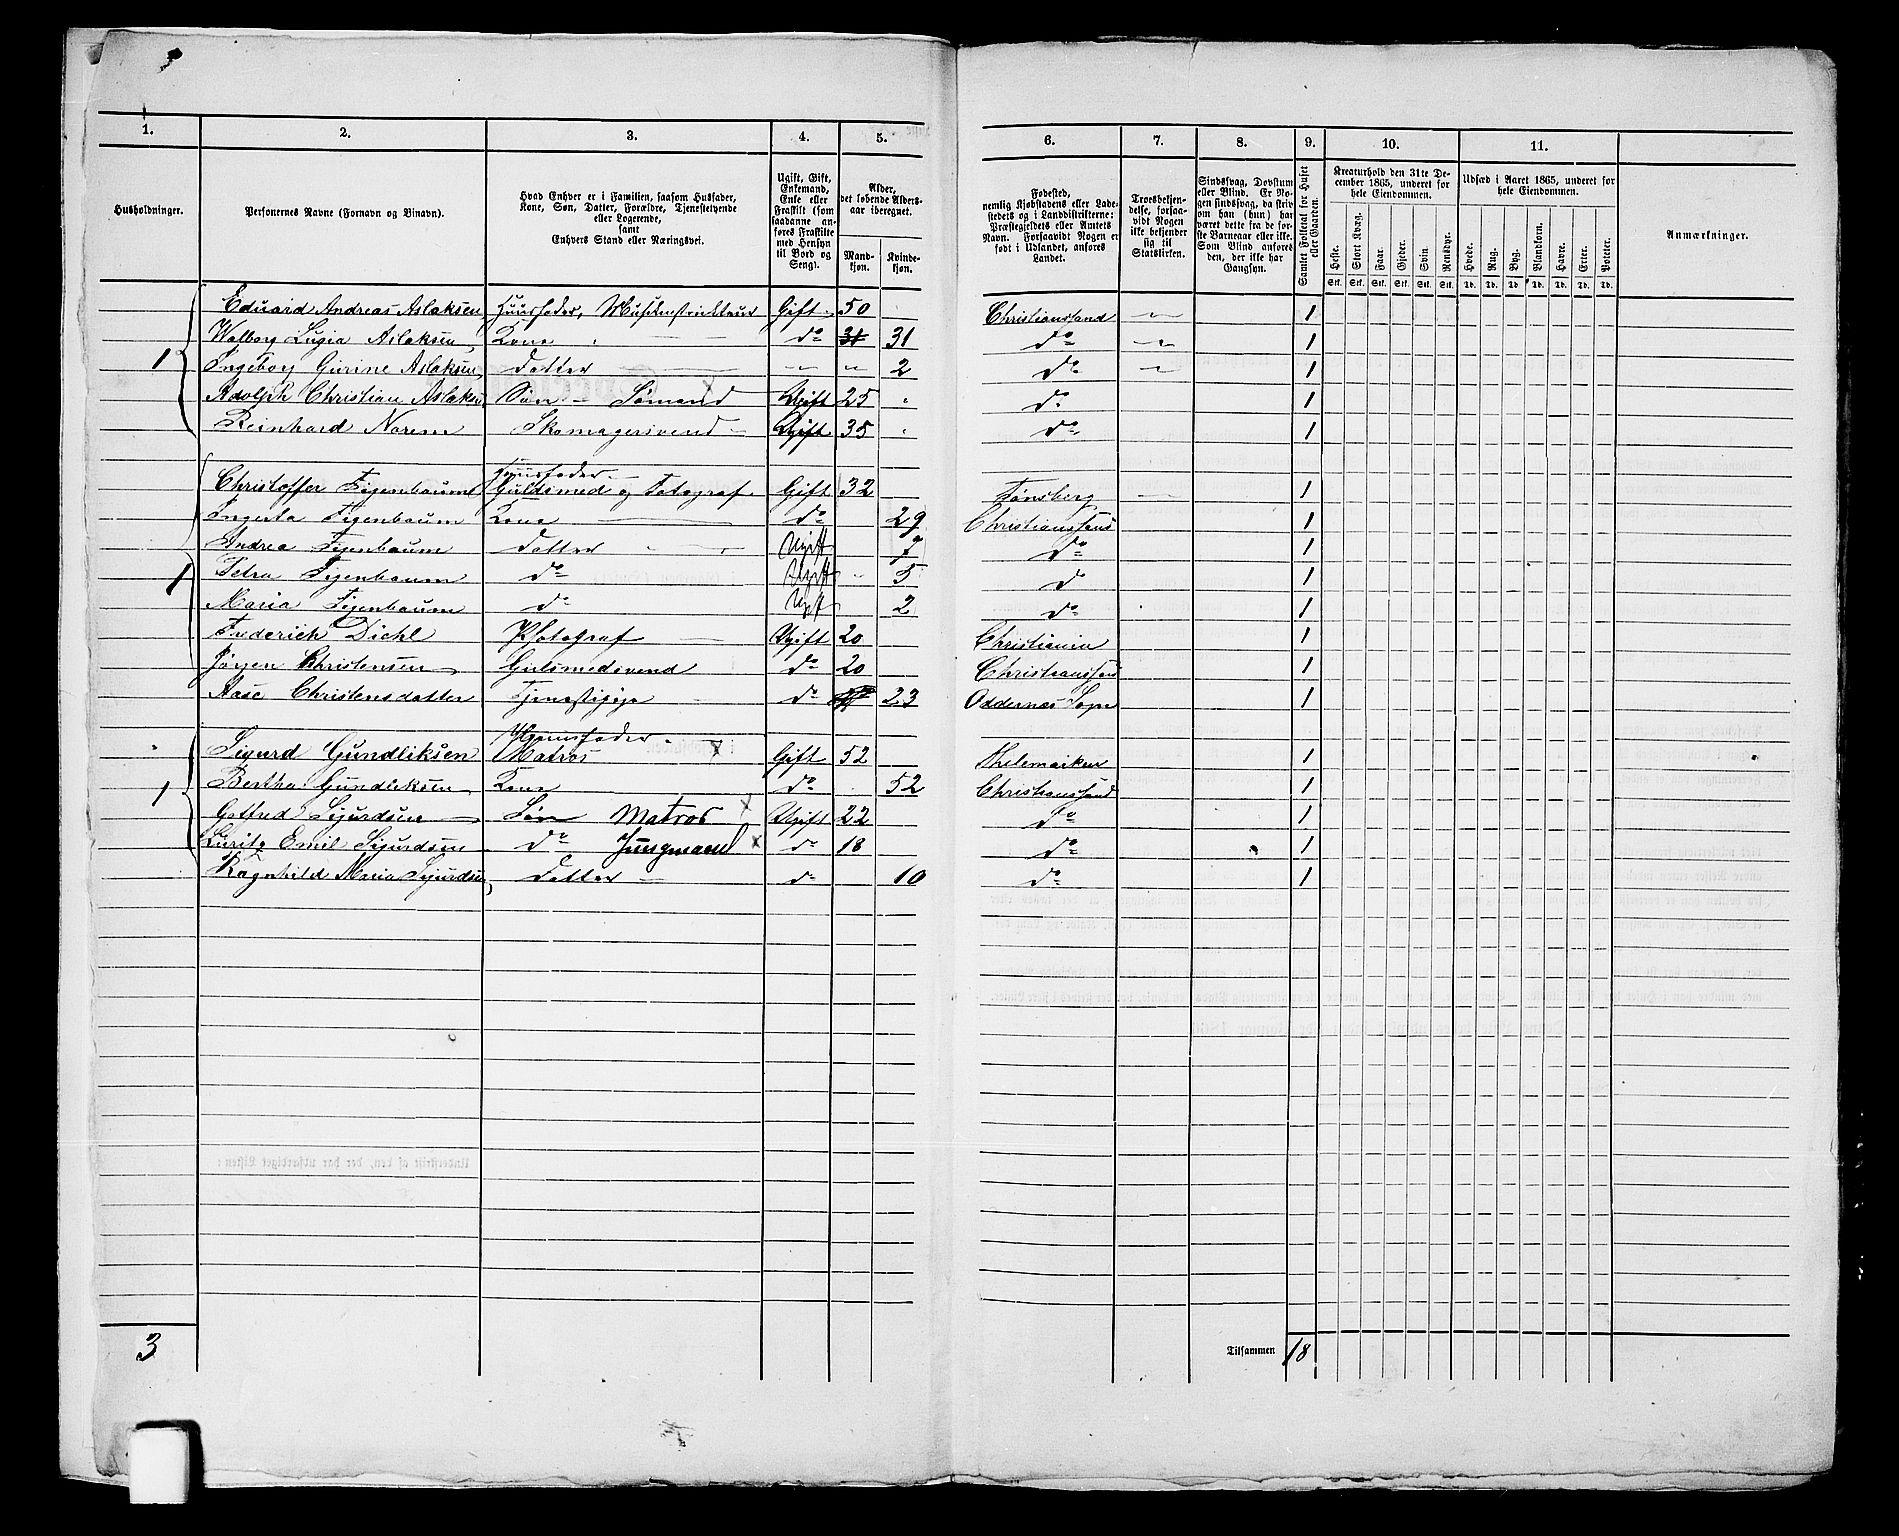 3
1. 2. 3. 4. 5. 6. 7. 8. 9. 10. 11.
Husholdninger.
Personernes Navne (Fornavn og Binavn).
Hvad Enhver er i Familien, saasom Husfader,
Kone, Søn, Datter, Forældre, Tjenestetyende
eller Logerende,
samt
Enhvers Stand eller Næringsvei.
Ugift, Gift,
Enkemand,
Enke eller
Fraskilt (som
saadanne an-
føres Fraskilte
med Hensyn
til Bord og
Seng).
Alder,
det løbende Alders-
aar iberegnet.
Mand-
kjøn.
Kvinde-
kjøn.
Fødested,
nemlig Kjøbstadens eller Lade-
stedets og i Landdistrikterne:
Præstegjeldets eller Amtets
Navn. Forsaavidt Nogen er
født i Udlandet, anføres
Landet.
Troesbekjen-
delse, forsaa-
vidt Nogen
ikke bekjender
sig til
Statskirken.
Sindssvag, Døvstum
eller Blind. Er No-
gen sindssvag, da skriv
om han (hun) har
været dette fra de før-
ste Barneaar eller ikke.
Som Blind anføres
den, der ikke har
Gangsyn.
Samlet Folketal for Huset
eller Gaarden.
Kreaturhold den 31te De-
cember 1865, anført for
hele Eiendommen.
Heste. Stort Kvæg. Faar. Gjeder. Svin. Rensdyr.
Stk. Stk. Stk. Stk. Stk. Stk.
Udsæd i Aaret 1865, anført for
hele Eiendommen.
Hvede. Rug. Byg. Blandkorn. Havre. Erter. Poteter.
Td. Td. Td. Td. Td. Td. Td.
Anmærkninger.
Eduard Andreas Aslaksen Huusfader, Musikinstrukteur Gift 50 Christianssand 1
Walborg Aslaksen Kone do 31 31 do 1
1 Ingeborg Gurine Aslaksen Datter 2 do 1
Adolph Christian Aslaksen Søn - Sømand Ugift 25 do 1
Reinhard Norem Skomagersvend Ugift 35 do 1
Huusfader
Christoffer Figenbaum Guldsmed og Fotograf Gift 32 Tønsberg 1
Figenbaum Kone do 29 Christianssand 1
Andrea Figenbaum Datter Ugift 7 do 1
1 Petra Figenbaum do Ugift 5 do 1
Maria Figenbaum do Ugift 2 do 1
Frederich Diehl Photograf Ugift 20 Christiania 1
Jørgen Christensen Gulsmedsvend do 20 Christianssand 1
Aase Christensdatter Tjenestepige do 23 Oddernes Sogn 1
Huusfader
Sigurd Gundliksen Matros Gift 52 Thelemarken 1
1 Bertha Gundleksen Kone do 52 Christianssand 1
Gotfred Sigurdsen Søn Matros Ugift 22 do 1
Emil Sigurdsen do Jungmand do 18 do 1
Ragnhild Maria Sigurdsen Datter do 10 do 1
3 Tilsammen 18